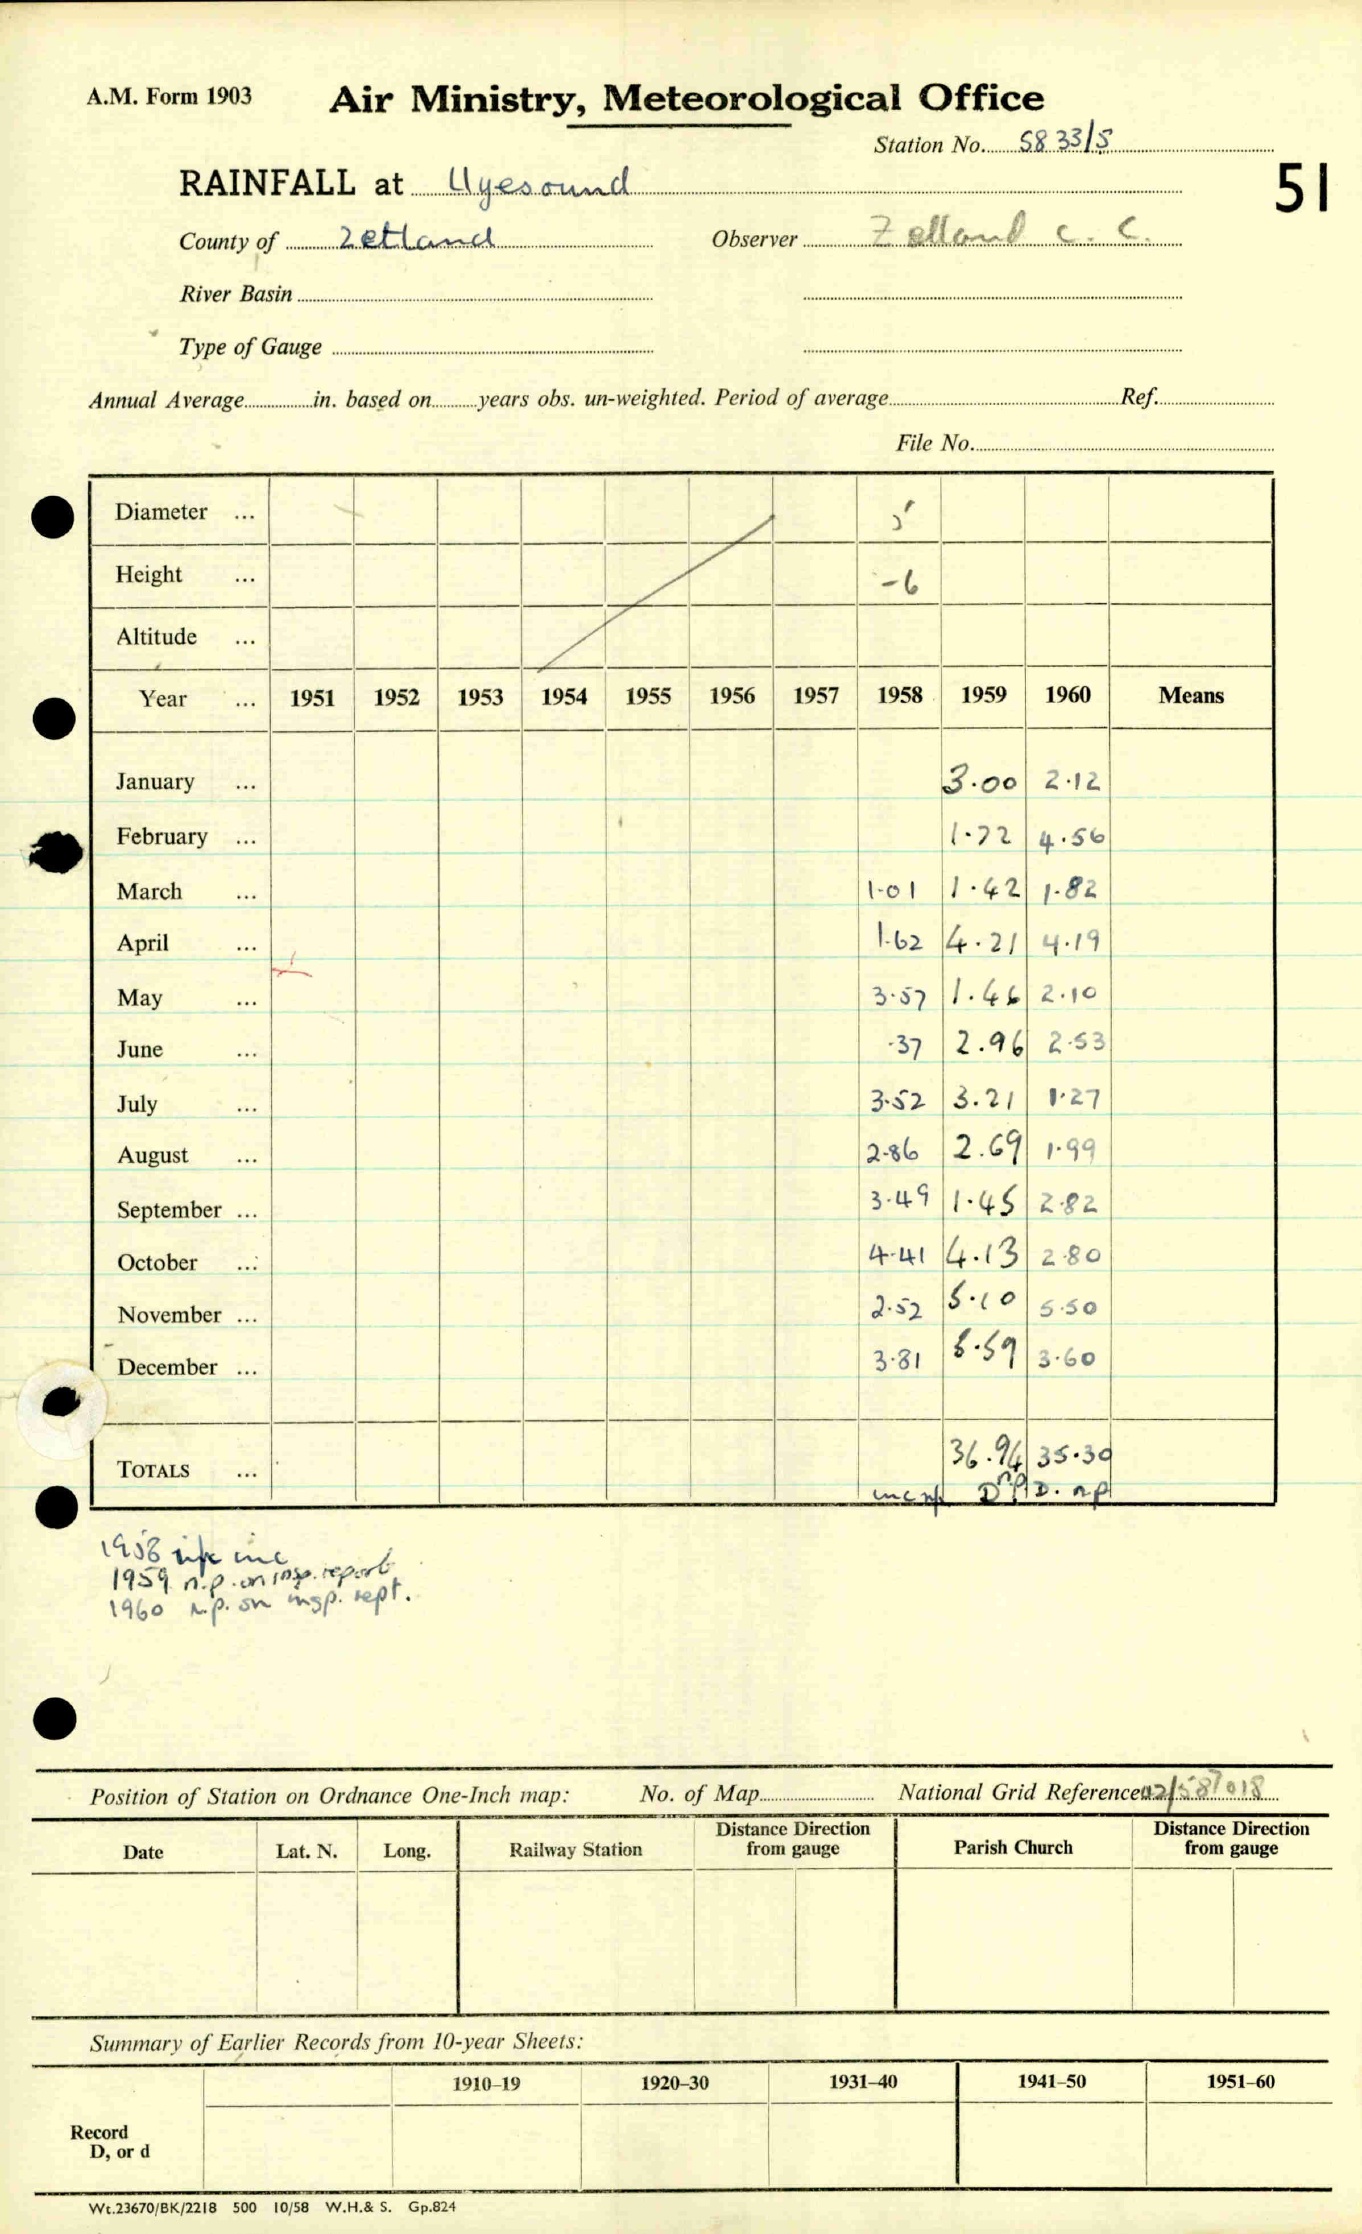 A.M. Form 1903 Air Ministry, Meteorological Office
Station No. 5833/5
RAINFALL at Uyesound 51
County of Zetland Observer Zetland C. C.
River Basin
Type of Gauge
Annual Average in. based on years obs. un-weighted. Period of average Ref.
File No.
Diameter ... 5
Height ... -6
Altitude ...
Year ... 1951 1952 1953 1954 1955 1956 1957 1958 1959 1960 Means
January ... 3.00 2.12
February ... 1.72 4.56
March ... 1.01 1.42 1.82
April ... 1.62 4.21 4.19
May ... 3.57 1.46 2.10
June ... .37 2.96 2.53
July ... 3.52 3.21 1.27
August ... 2.86 2.69 1.99
September ... 3.49 1.45 2.82
October ... 4.41 4.13 2.80
November ... 2.52 5.10 5.50
December ... 3.81 5.59 3.60
TOTALS ... 36.94 35.30
inc np D np D. np
1958 inc
1959 n.p. on insp. report
1960 n.p. on insp. rept.
Position of Station on Ordnance One-Inch map: No. of Map National Grid Reference
Date Lat. N. Long. Railway Station Distance Direction from gauge Parish Church Distance Direction from gauge
Summary of Earlier Records from 10-year Sheets:
1910–19 1920–30 1931–40 1941–50 1951–60
Record
D, or d
Wt.23670/BK/2218 500 10/58 W.H.& S. Gp.824